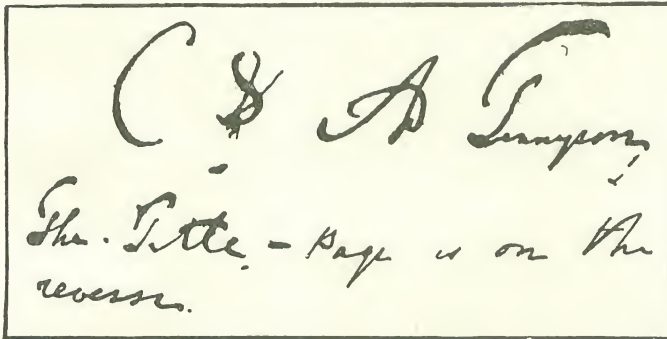 C & A Tennyson
The Title-Page is on the
reverse.